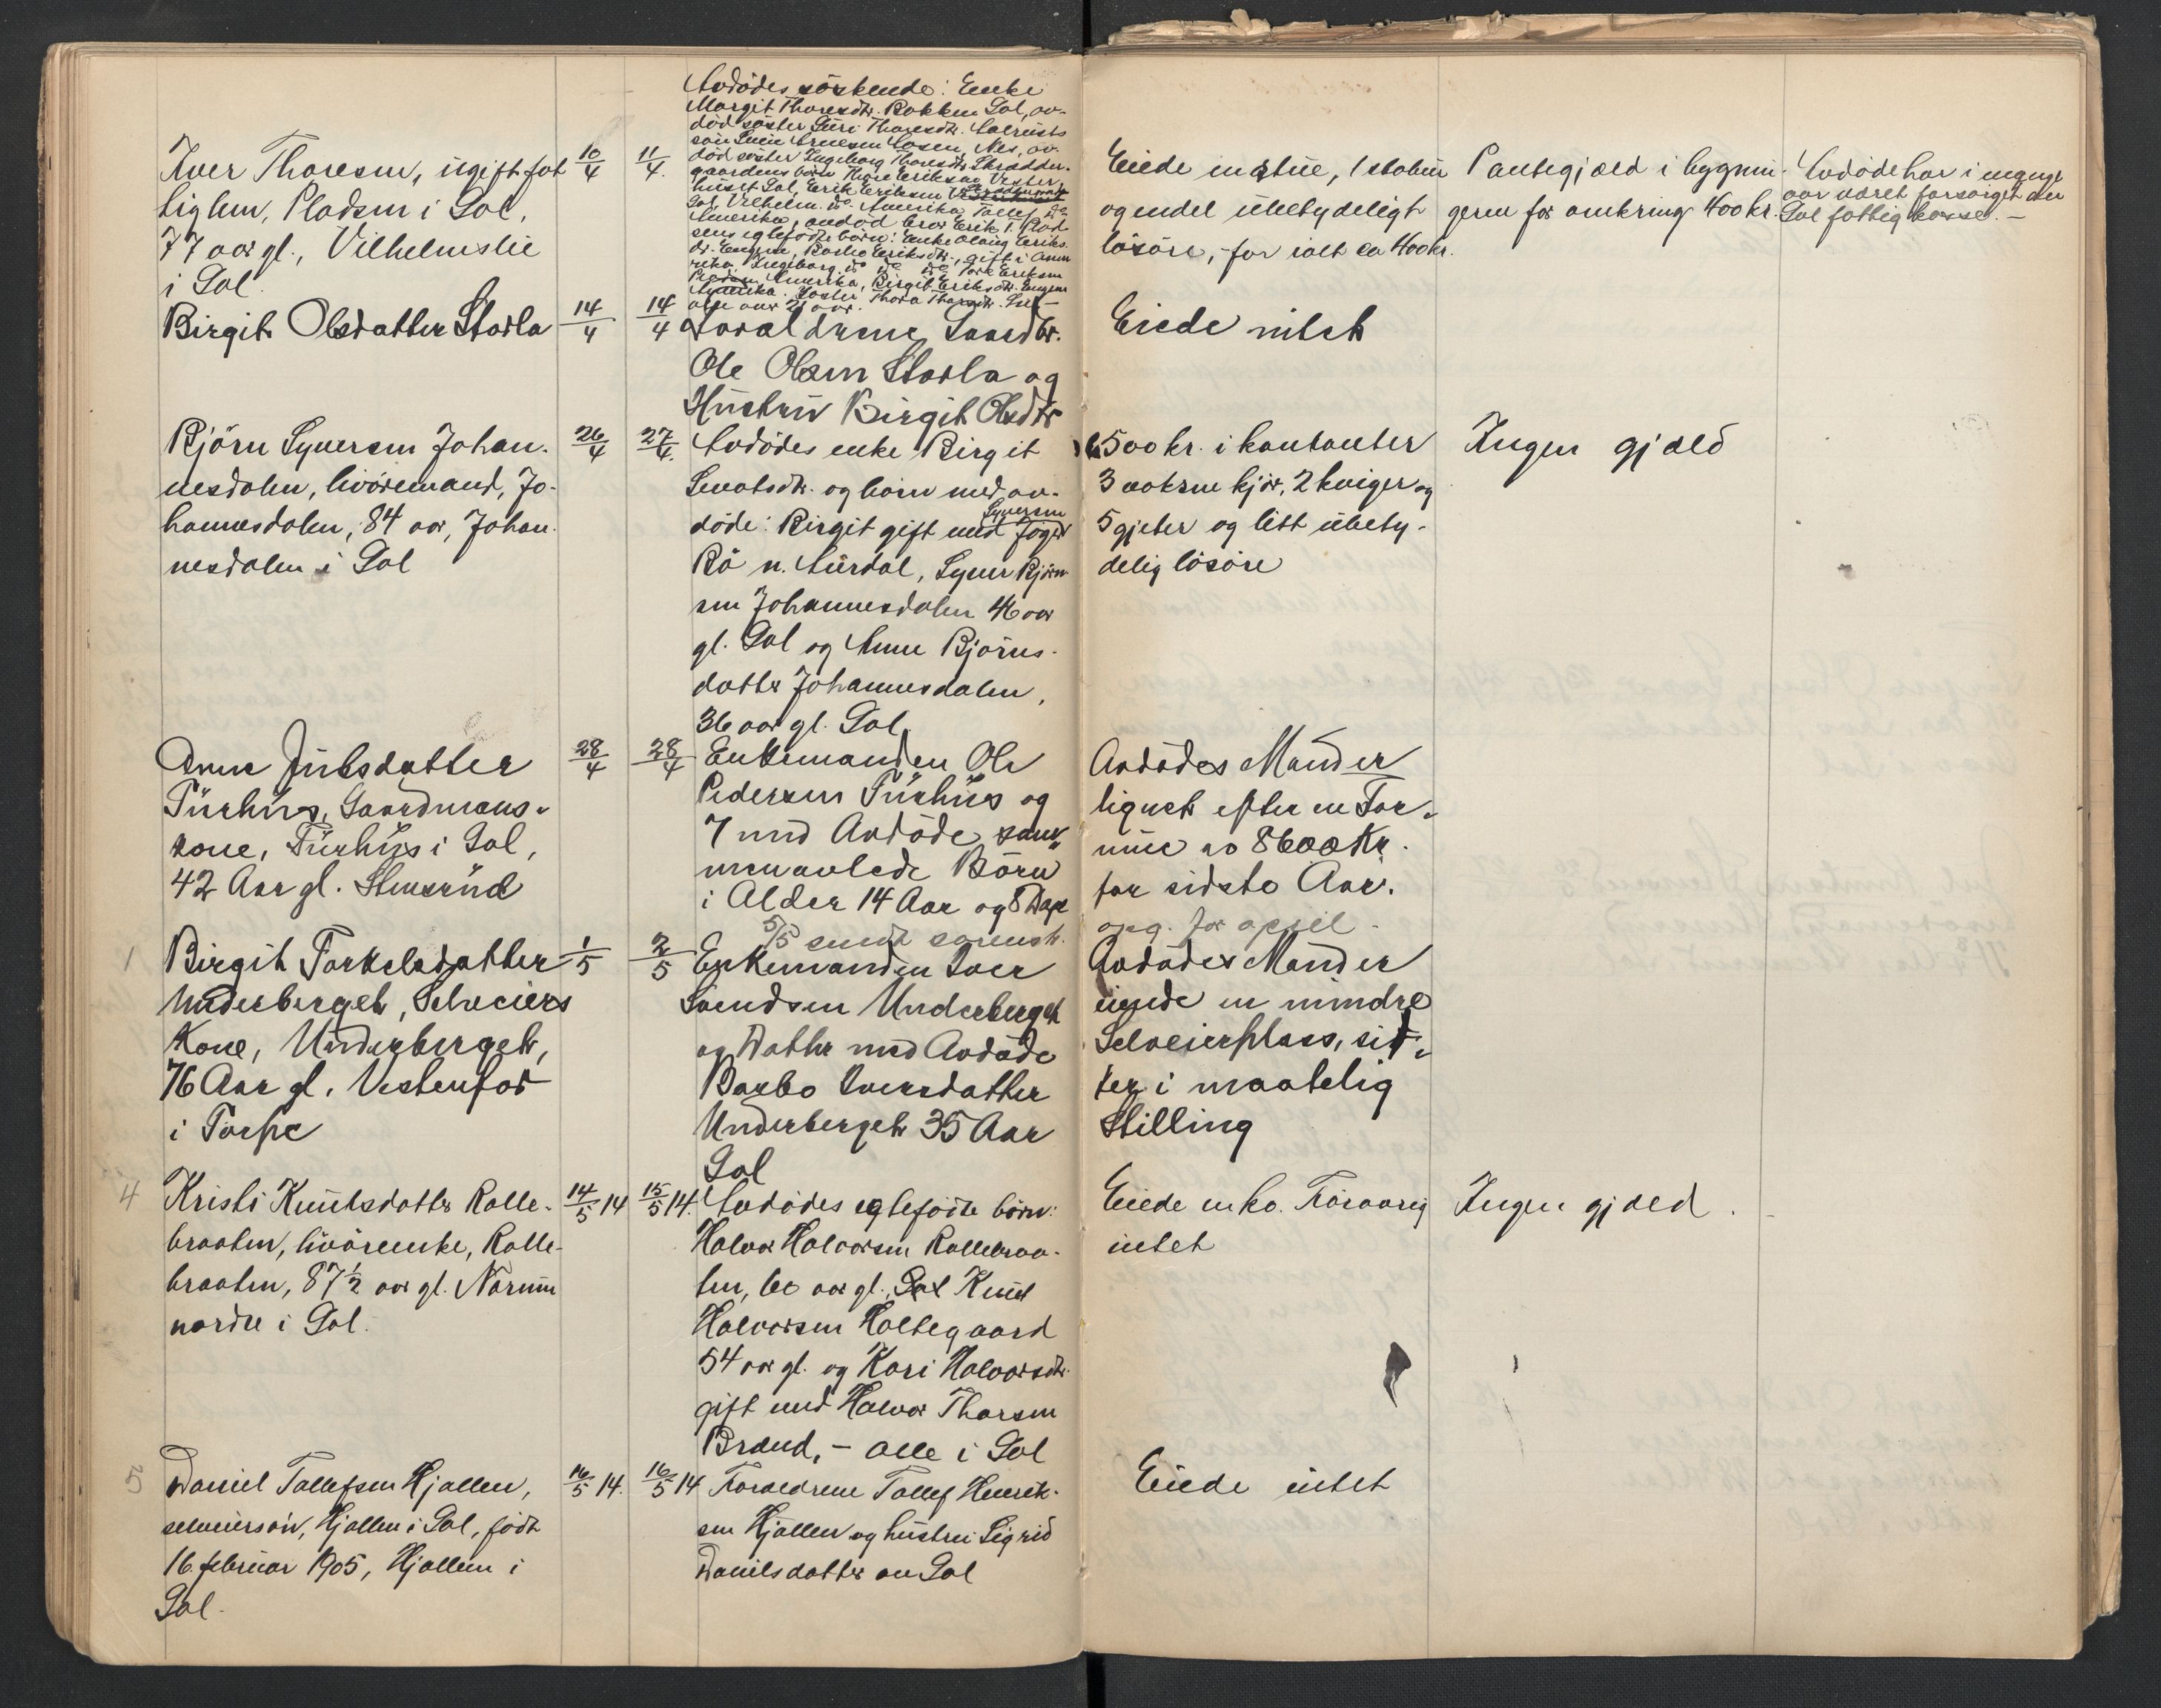 Iver Thoresen, ugift fat
tiglem, Pladsen i Gol,
77 aar gl., Vilhelmslie
i Gol
10/4
11/4.
Avdödes söskende: Enke
Margit Thoresdtr. Bakken Gol, av-
död söster Guri Thoresdtr.
død söster Ingeborg Thoresdtr. Skrædder-
gaardens børn Thore Eriksen Vester
huset Gol, Erik Eriksen
Gol, Vilhelm do Amerika, Tollef do
Amerika, avdöd bror Erik T. Plad-
sens egtefödte börn: Enke Olaug Eriks
dr. Engene, Barbo Eriksdtr., gift i Ame
rika, Ingeborg do do do Tore Eriksen
Pladsen Amerika, Birgit Eriksdtr. Engene
Amerika. Søster Thora Thoresdtr. Gol –
alle over 21 aar.
Eiede en stue, 1 stabur
og endel ubetydeligt
lösöre, for ialt ca 400 kr.
Pantegjæld i bygnin-
gerne for omkring 400 kr.
Avdöde har i mange
aar været forsørget av
Gol fattigkasse. –
Birgit Olsdatter Storla
14/4
14/4
Foræld rene Gaardbr.
Ole Olsen Storla og
Hustru Birgit Olsdtr
Eiede intet
Björn Syversen Johan-
nesdalen, livöremand, Jo-
hannesdalen, 84 aar, Johan-
nesdalen i Gol
26/4
27/4.
Avdödes enke Birgit
og barn med av-
döde: Birgit gift med Syversen
Rö n. Aurdal, Syver Björn-
sen Johannesdalen 46 aar
gl. Gol og Anne Björns-
datter Johannesdalen,
36 aar gl. Gol.
500 kr. i kontanter
3 voksne kjör, 2 kviger og
5 gjeter og litt ubety-
delig lösöre
Ingen gjæld
Anne Julsdatter
Turhus, Gaardmans-
kone, Turhus i Gol,
42 Aar gl. Stensrud
28/4
28/4
Enkemanden Ole
Pedersen Turhus og
7 med Avdöde sam
menavlede Börn
i Alder 14 Aar og 8 Dage
5/5 sendt sorensk.
Avdödes Mand er
lignet efter en For-
mue av 8600 Kr.
for sidste Aar.
opg. for april –
1
Birgit Torkelsdatter
Underberget, Selveiers
Kone, Underberget,
76 Aar gl. Vestenfor
i Torpe
1/5
2/5
Enkemanden Iver
Svendsen Underberget
og Datter med Avdöde
Barbo Iversdatter
Underberget 35 Aar
Gol
Avdödes Mand er
eiende en mindre
Selveierplass, sit-
ter i maatelig
Stilling
4
Kristi Knutsdatter Rolle-
braaten, livöreenke, Rolle-
braaten, 87½ aar gl. Narum
nordre i Gol.
14/5 14
15/5 14.
Avdödes egtefödte börn:
Halvor Halvorsen Rollebraa-
ten, 60 aar gl., Gol Knut
Halvorsen Holtegaard
54 aar gl. og Kari Halvorsdtr.
gift med Halvor Thorsen
Brænd, – alle i Gol
Eiede en ko. Forøvrig
intet
Ingen gjæld.
5
Daniel Tollefsen Hjallen,
selveiersön, Hjallen i Gol, födt
16. februar 1905, Hjallen i
Gol.
16/5 14.
16/5 14
Forældrene Tollef Henrik-
sen Hjallen og hustru Sigrid
Danielsdatter av Gol
Eiede intet